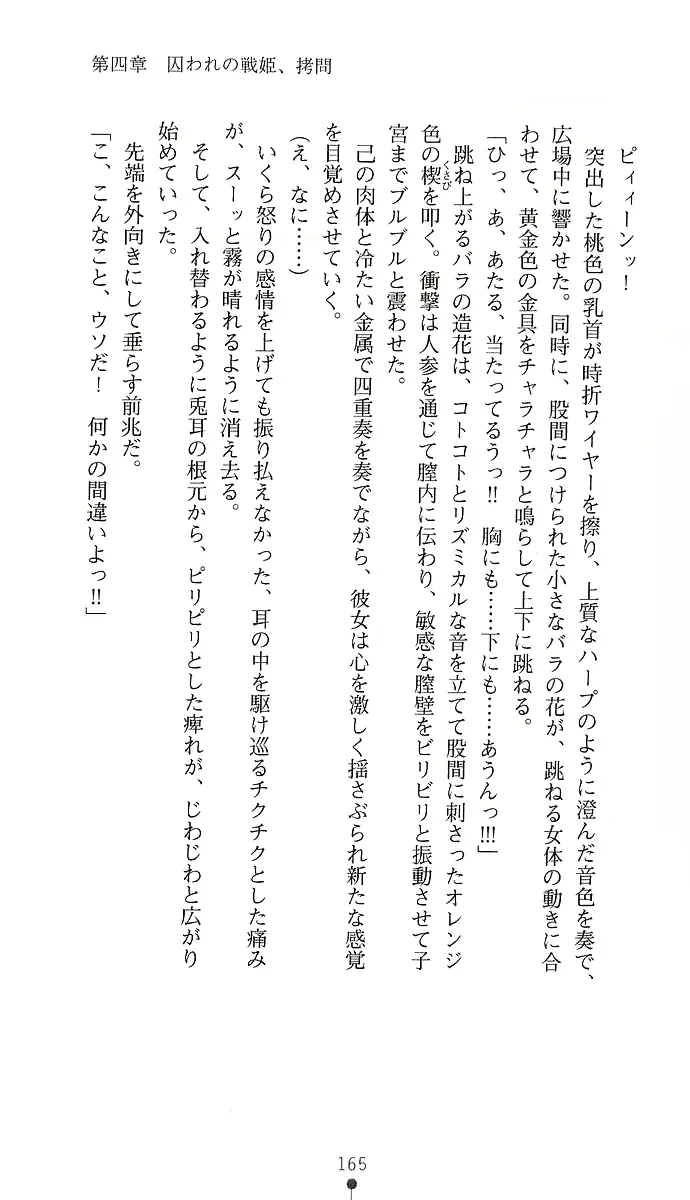 第四章　囚われの戦姫、拷問
ピィィーンッ！
突出した桃色の乳首が時折ワイヤーを擦り、上質なハープのように澄んだ音色を奏で、
広場中に響かせた。同時に、股間につけられた小さなバラの花が、跳ねる女体の動きに合
わせて、黄金色の金具をチャラチャラと鳴らして上下に跳ねる。
「ひっ、あ、あたる、当たってるうっ!!　胸にも……下にも……あうんっ!!!」
跳ね上がるバラの造花は、コトコトとリズミカルな音を立てて股間に刺さったオレンジ
色の楔を叩く。衝撃は人参を通じて膣内に伝わり、敏感な膣壁をビリビリと振動させて子
くさび
宮までブルブルと震わせた。
己の肉体と冷たい金属で四重奏を奏でながら、彼女は心を激しく揺さぶられ新たな感覚
を目覚めさせていく。
（え、なに……）
いくら怒りの感情を上げても振り払えなかった、耳の中を駆け巡るチクチクとした痛み
が、スーッと霧が晴れるように消え去る。
そして、入れ替わるように兎耳の根元から、ピリピリとした痺れが、じわじわと広がり
始めていった。
先端を外向きにして垂らす前兆だ。
「こ、こんなこと、ウソだ！　何かの間違いよっ!!」
165